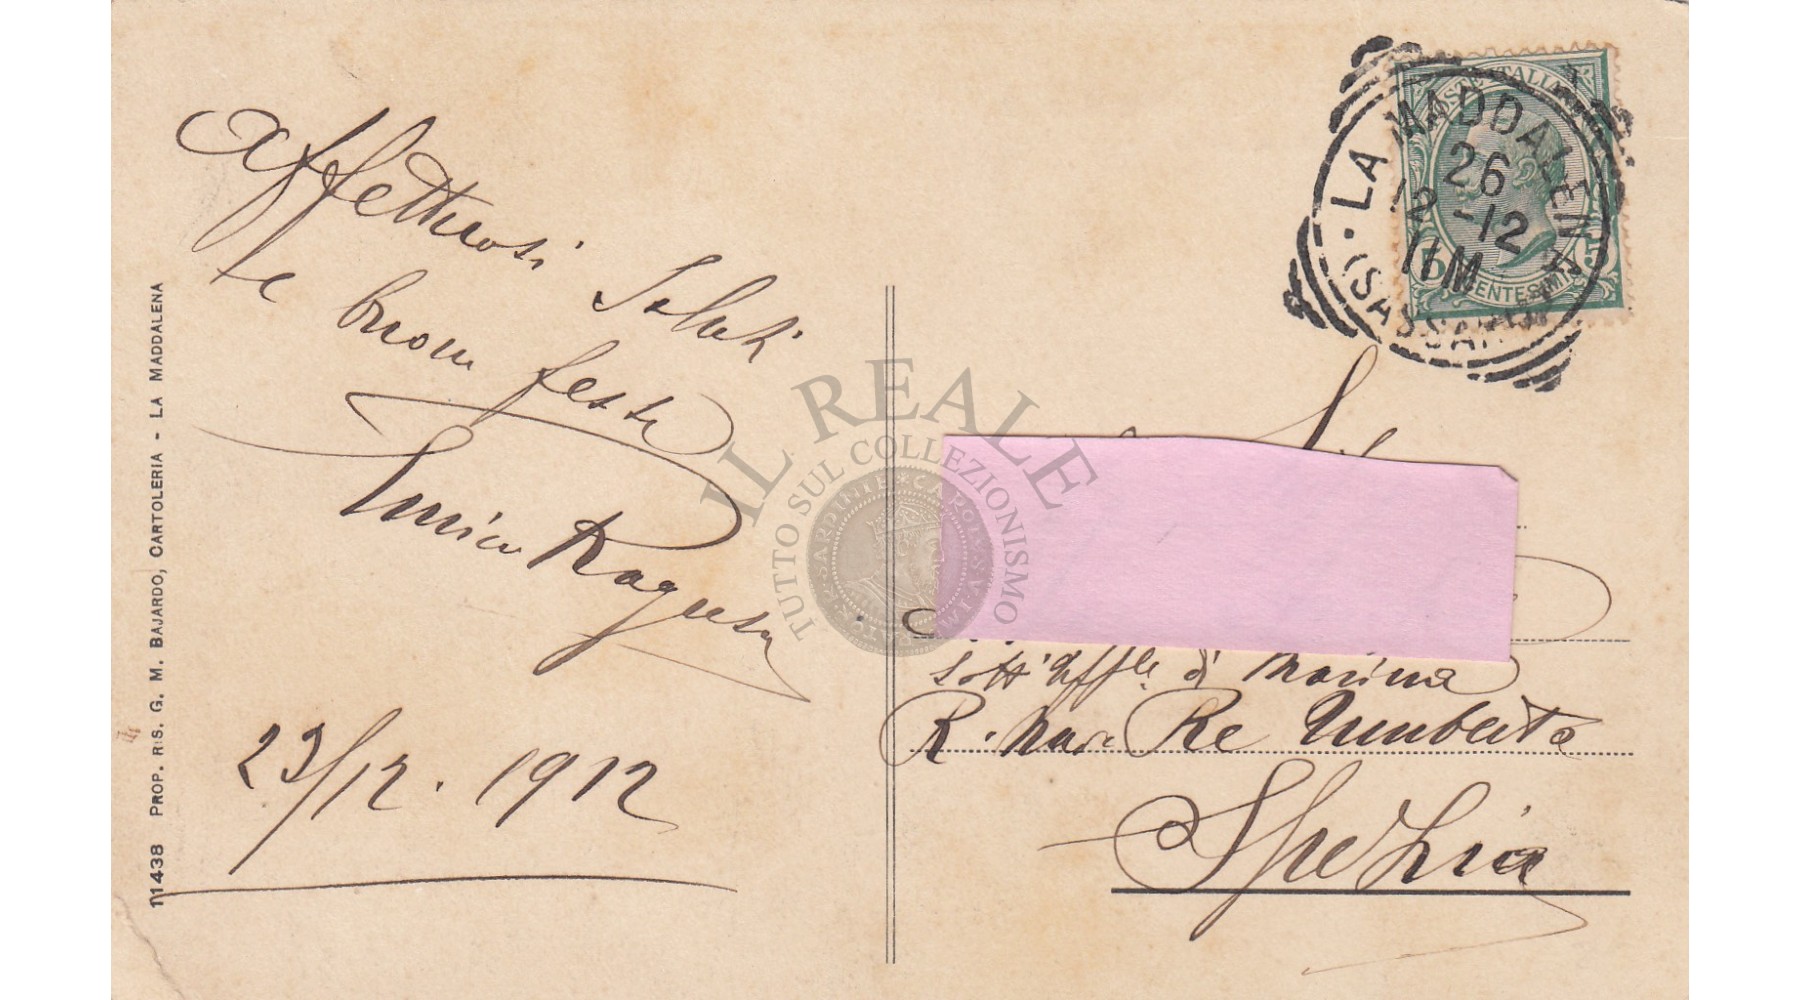 Affettuosi Saluti
e buone feste
Enrico Ragusa
23/12. 1912
11438 PROP. RIS. G. M. BAJARDO, CARTOLERIA - LA MADDALENA
POSTE ITALIANE
CENTESIMI 5
LA MADDALENA
26
12 - 12
11M
(SASSARI)
IL REALE
TUTTO SUL COLLEZIONISMO
Sott'Uffle di Marina
R. Nave Re Umberto
Spezia